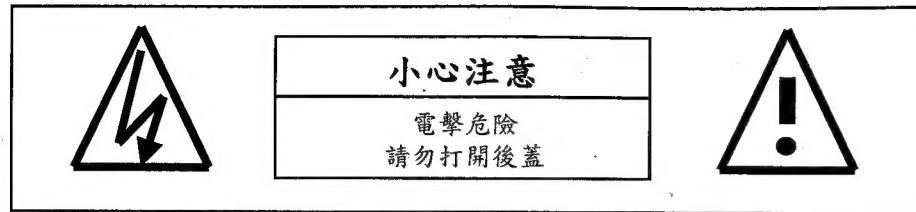 小心注意
電擊危險
請勿打開後蓋